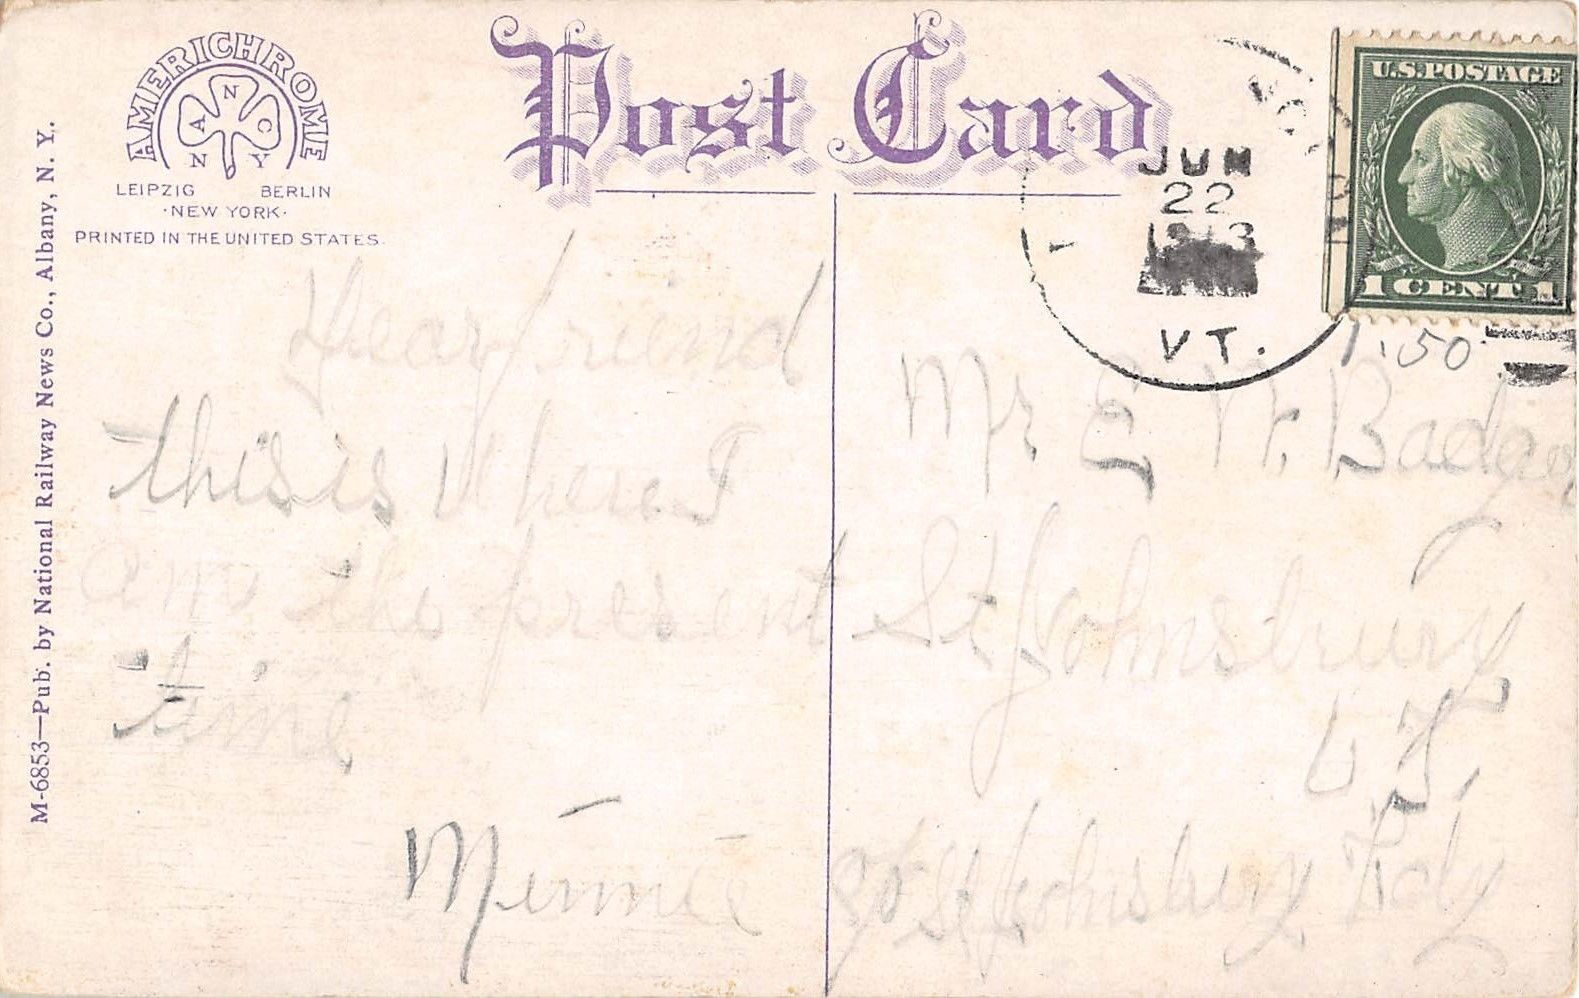 AMERICHROME
N
A C
N Y
LEIPZIG BERLIN
·NEW YORK·
PRINTED IN THE UNITED STATES.
M-6853—Pub. by National Railway News Co., Albany, N. Y.
Post Card
JUN
22
1913
VT.
U.S. POSTAGE
1 CENT 1
1.50
Dear friend
this is where I
am the present
time
Minnie
Mr E W. Badger
St Johnsbury
VT.
c/o St Johnsbury